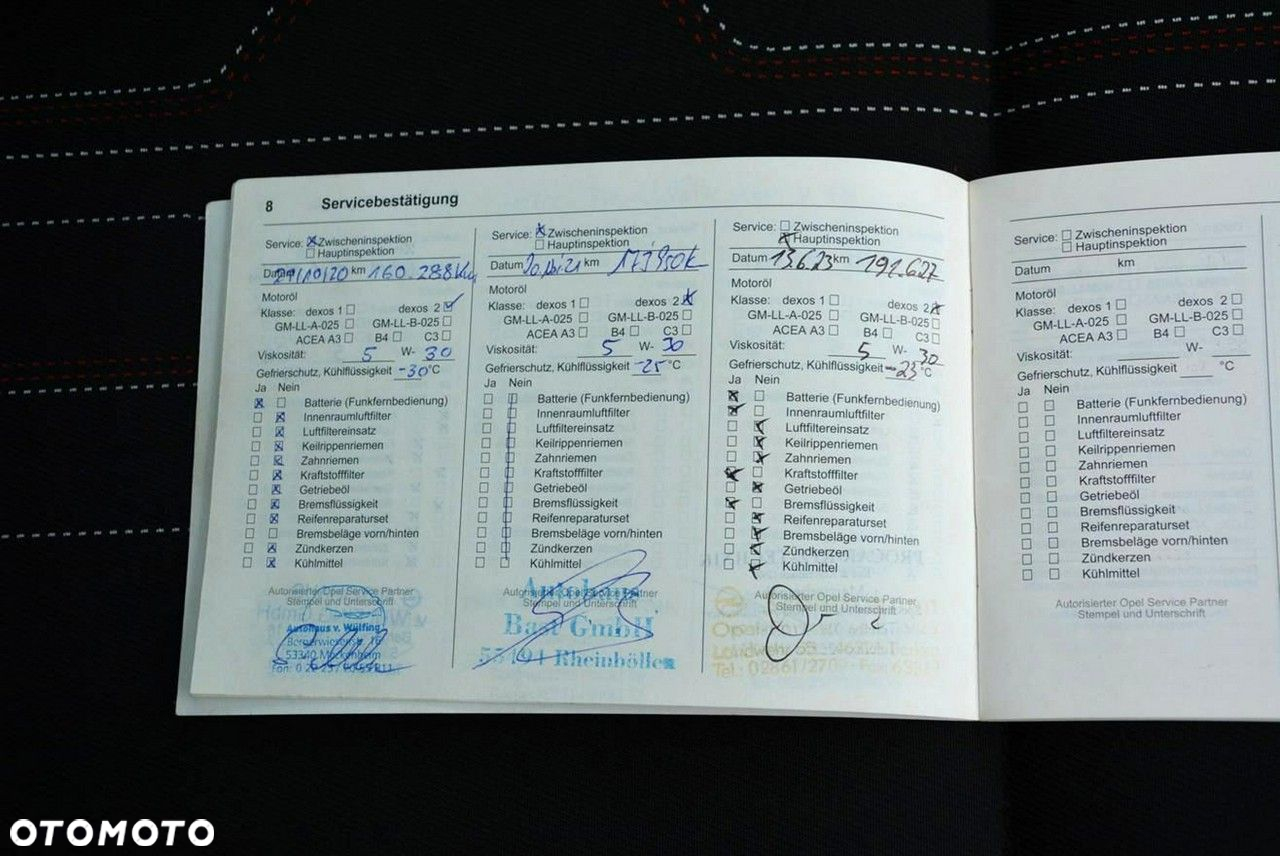 8 Servicebestätigung
Service: Zwischeninspektion
Hauptinspektion
Datum 29/10/20 km 160.288 Km
Motoröl
Klasse: dexos 1 dexos 2
GM-LL-A-025 GM-LL-B-025
ACEA A3 B4 C3
Viskosität: 5 W- 30
Gefrierschutz, Kühlflüssigkeit -30 °C
Ja Nein
Batterie (Funkfernbedienung)
Innenraumluftfilter
Luftfiltereinsatz
Keilrippenriemen
Zahnriemen
Kraftstofffilter
Getriebeöl
Bremsflüssigkeit
Reifenreparaturset
Bremsbeläge vorn/hinten
Zündkerzen
Kühlmittel
Autorisierter Opel Service Partner
Stempel und Unterschrift
Autohaus v. Wülfing
53340 Meckenheim
Service: Zwischeninspektion
Hauptinspektion
Datum km
Motoröl
Klasse: dexos 1 dexos 2
GM-LL-A-025 GM-LL-B-025
ACEA A3 B4 C3
Viskosität: 5 W- 30
Gefrierschutz, Kühlflüssigkeit -25 °C
Ja Nein
Batterie (Funkfernbedienung)
Innenraumluftfilter
Luftfiltereinsatz
Keilrippenriemen
Zahnriemen
Kraftstofffilter
Getriebeöl
Bremsflüssigkeit
Reifenreparaturset
Bremsbeläge vorn/hinten
Zündkerzen
Kühlmittel
Autorisierter Opel Service Partner
Stempel und Unterschrift
Autohaus
Bast GmbH
55494 Rheinböllen
Service: Zwischeninspektion
Hauptinspektion
Datum 13.6.23 km 192.627
Motoröl
Klasse: dexos 1 dexos 2
GM-LL-A-025 GM-LL-B-025
ACEA A3 B4 C3
Viskosität: 5 W- 30
Gefrierschutz, Kühlflüssigkeit -23 °C
Ja Nein
Batterie (Funkfernbedienung)
Innenraumluftfilter
Luftfiltereinsatz
Keilrippenriemen
Zahnriemen
Kraftstofffilter
Getriebeöl
Bremsflüssigkeit
Reifenreparaturset
Bremsbeläge vorn/hinten
Zündkerzen
Kühlmittel
Autorisierter Opel Service Partner
Stempel und Unterschrift
Service: Zwischeninspektion
Hauptinspektion
Datum km
Motoröl
Klasse: dexos 1 dexos 2
GM-LL-A-025 GM-LL-B-025
ACEA A3 B4 C3
Viskosität: W-
Gefrierschutz, Kühlflüssigkeit °C
Ja Nein
Batterie (Funkfernbedienung)
Innenraumluftfilter
Luftfiltereinsatz
Keilrippenriemen
Zahnriemen
Kraftstofffilter
Getriebeöl
Bremsflüssigkeit
Reifenreparaturset
Bremsbeläge vorn/hinten
Zündkerzen
Kühlmittel
Autorisierter Opel Service Partner
Stempel und Unterschrift
OTOMOTO